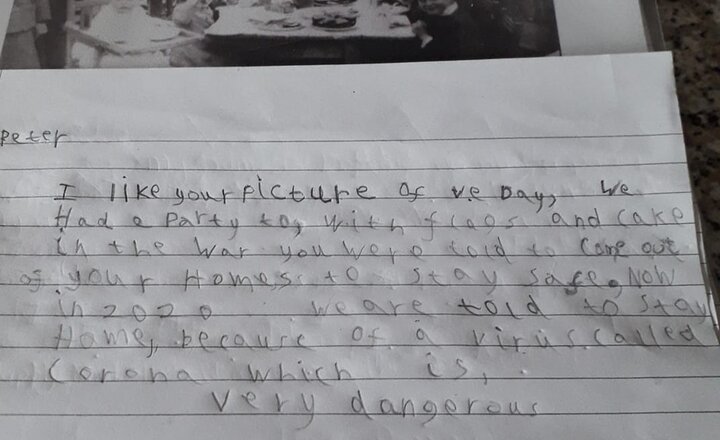 Peter
I like your picture of v.e Day, We
Had a Party to, with flags and cake
in the war you were told to Come out
of your Homes to stay safe. Now
in 2020 we are told to stay
Home, because of a virus. called
Corona which is,
very dangerous